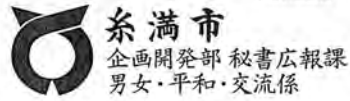 糸満市
企画開発部 秘書広報課
男女・平和・交流係